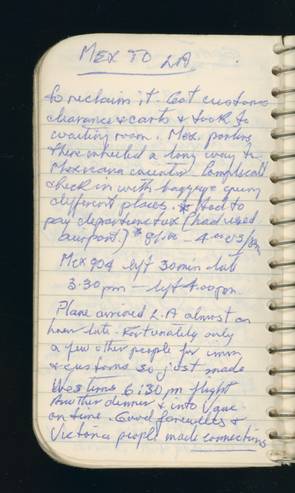 MEX TO LA
to reclaim it. Got customs
clearance & carts & took to
waiting room. Mex. porters
there wheeled a long way to
Mexicana counter. Complicated
check in with baggage going
different places. Had to
pay departure tax (had used
airport.)
Mex 904 left 30 min late
3.30 pm — left 4.00 pm.
Plane arrived L.A almost an
hour late. Fortunately only
a few other people for imm
& customs so just made
Westerns 6:30 pm flight
Another dinner & into Vanc
on time. Good farewells &
Victoria people made connections